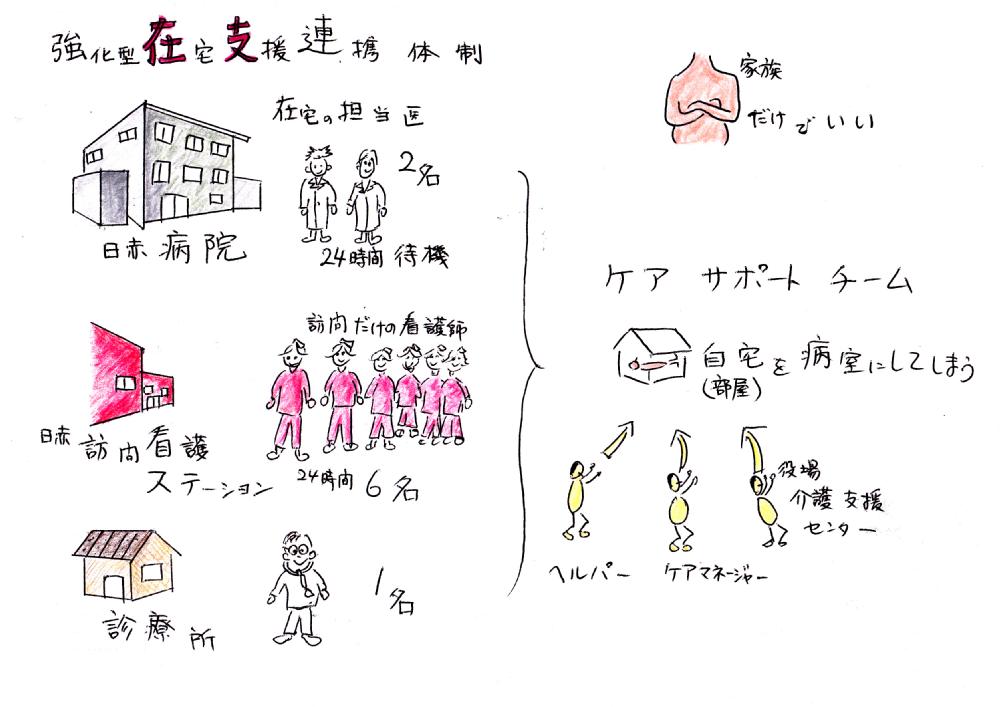 強化型在宅支援連携体制
在宅の担当医
2名
24時間待機
日赤病院
訪問だけの看護師
24時間 6名
日赤訪問看護
ステーション
1名
診療所
家族
だけでいい
ケアサポートチーム
自宅を病室にしてしまう
(部屋)
役場
介護支援
センター
ヘルパー
ケアマネージャー